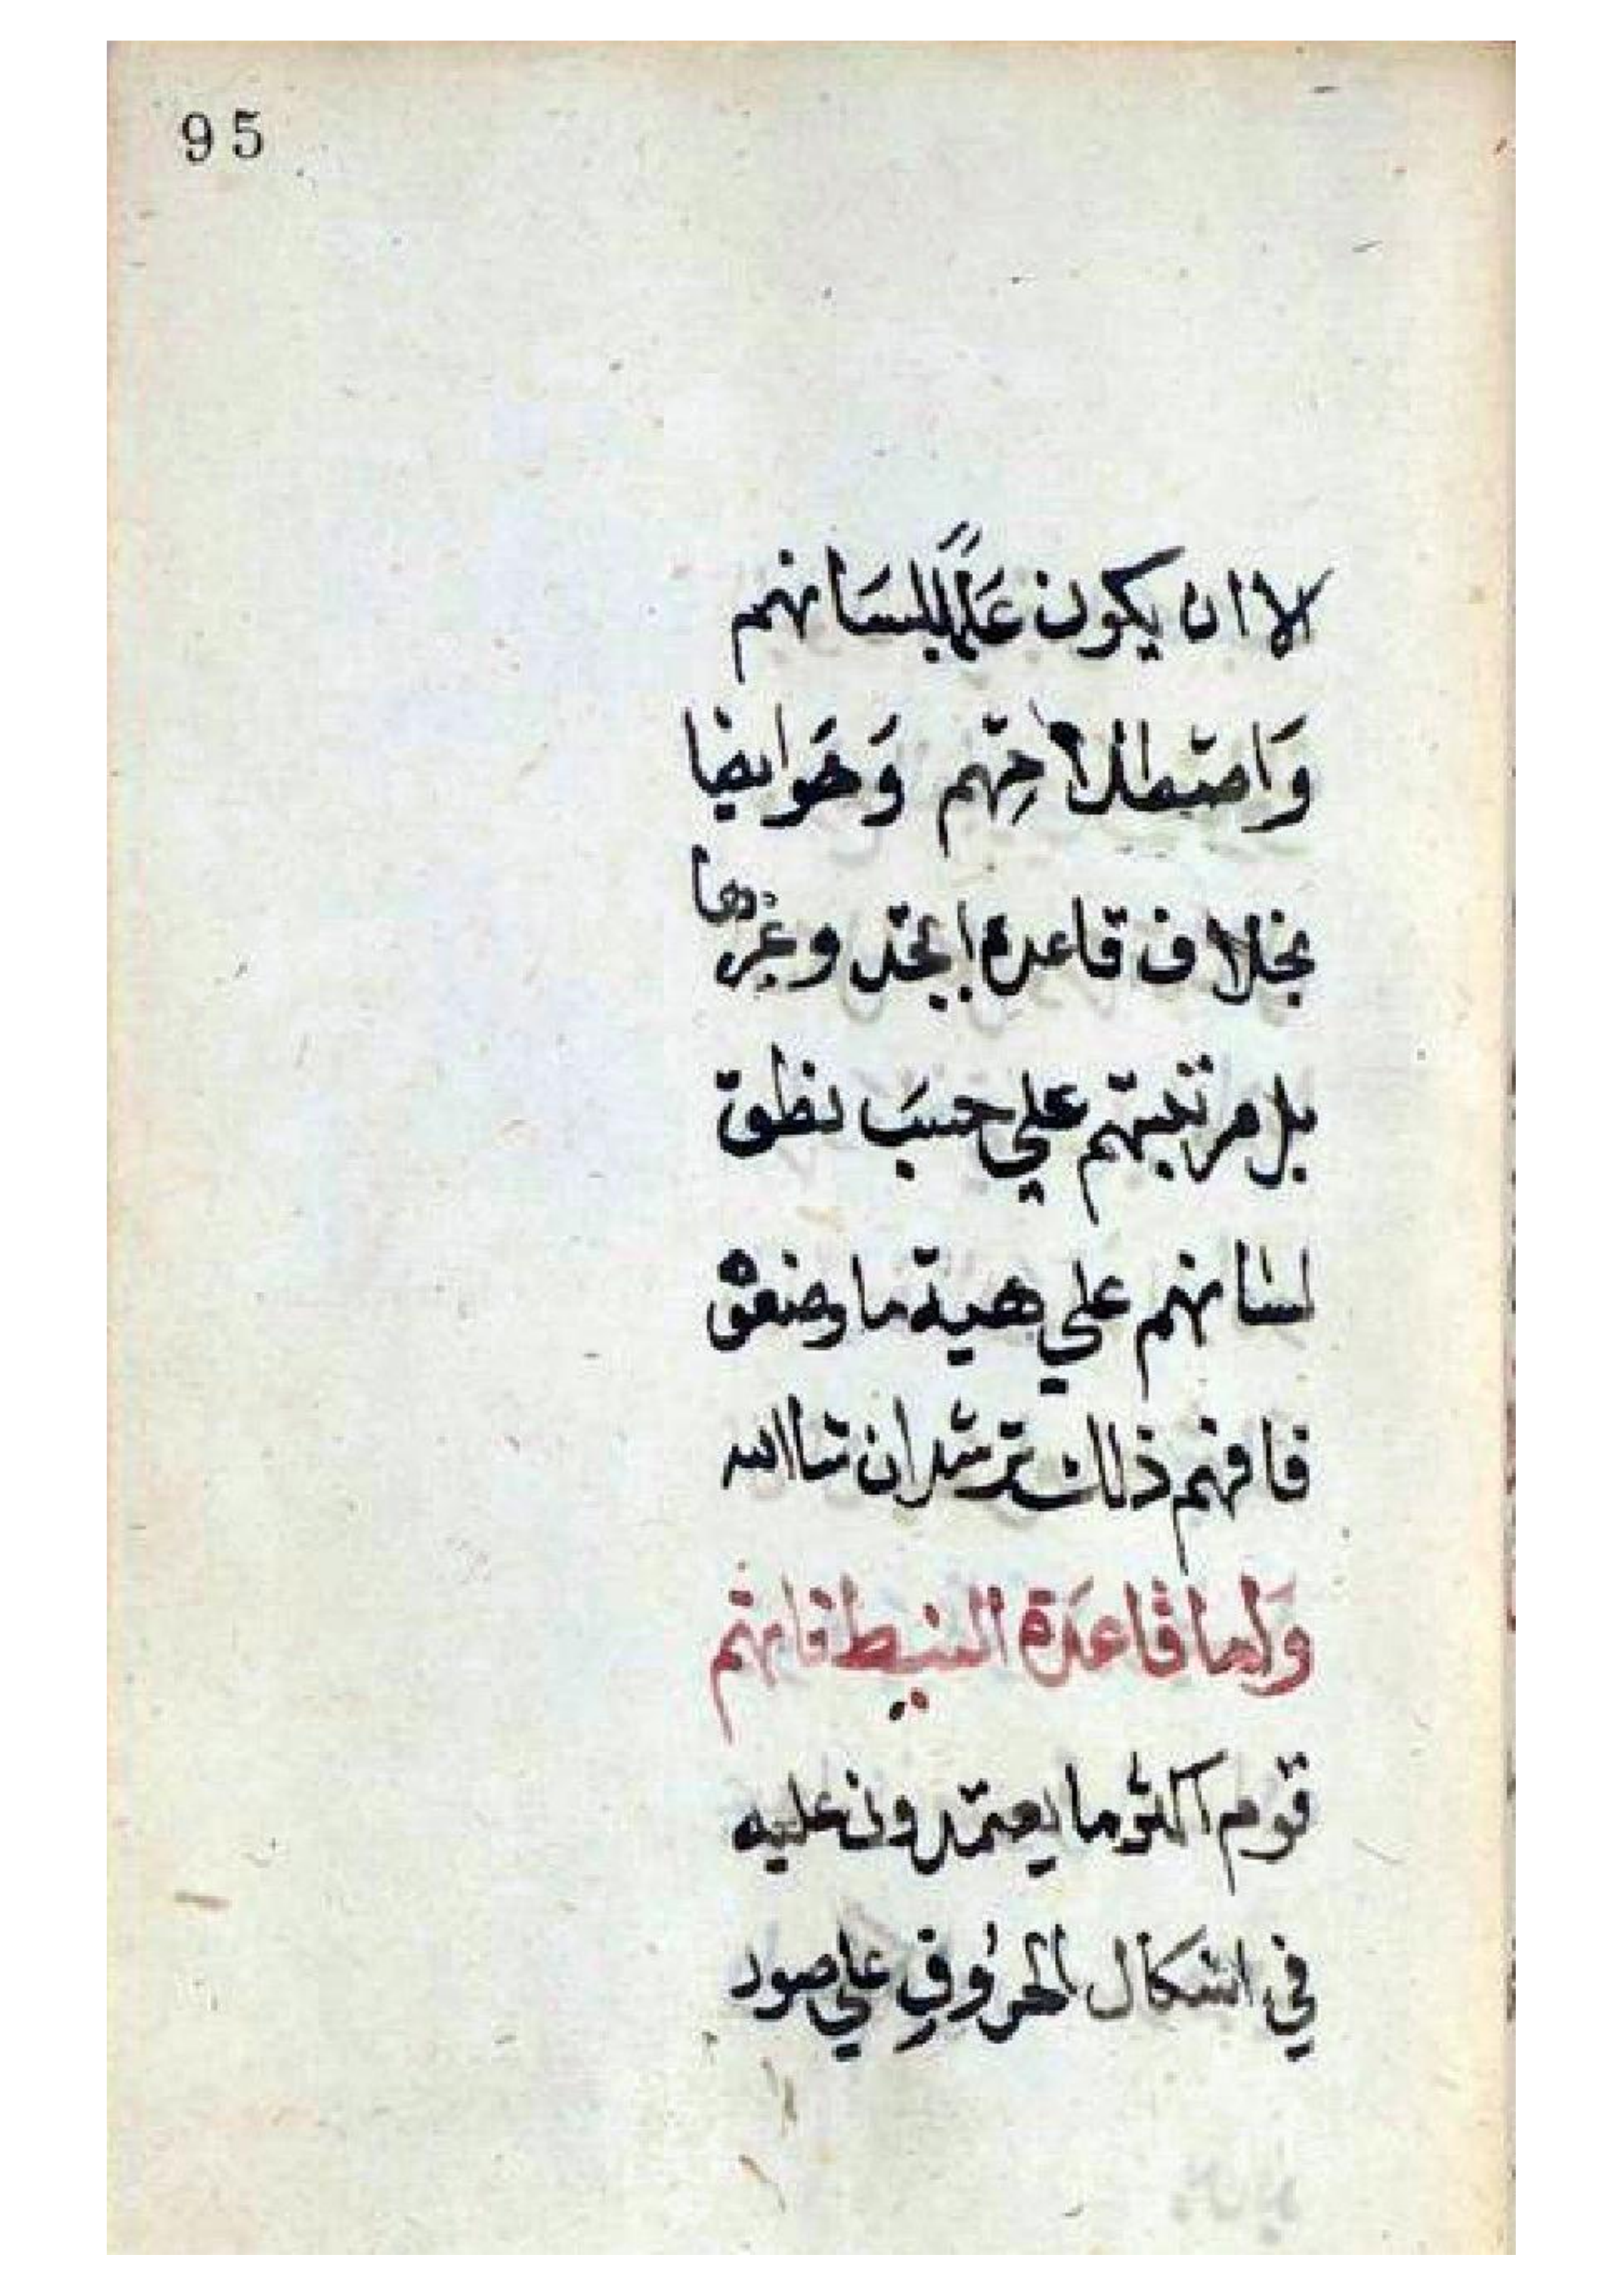 95
لا ان يكون عَلمًا بلسَانهم
وَاصطلاحِهم وَهَوايضا
بخلاف قاعدة ابجد وغيرها
بل مرتبتهم علي حسَب نطق
لسانهم علي هية ما وضعوه
فافهم ذلك ترشد ان شا الله
وَاما قاعدَة النبط فانهم
قوم اكثر ما يعتمدون عليه
في اشكال الحرُوفِ علي صور